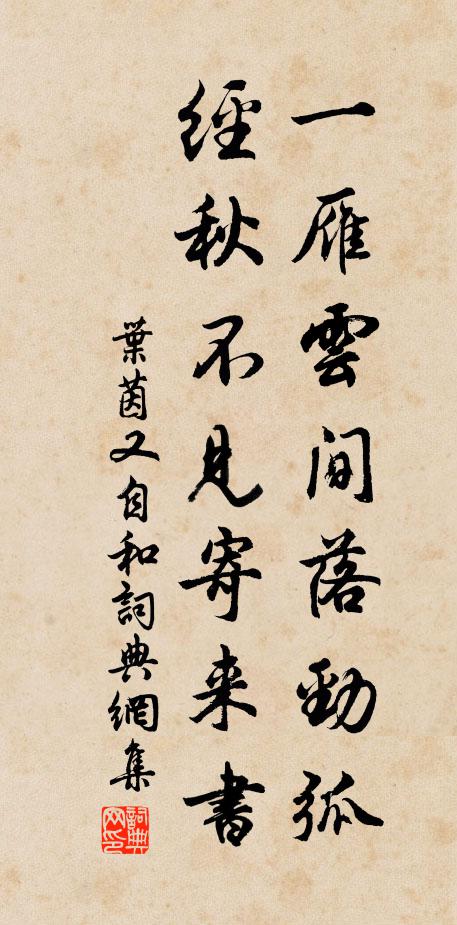 一雁雲間落勁弧
經秋不見寄来書
葉茵又自和詞典網集
詞典网印